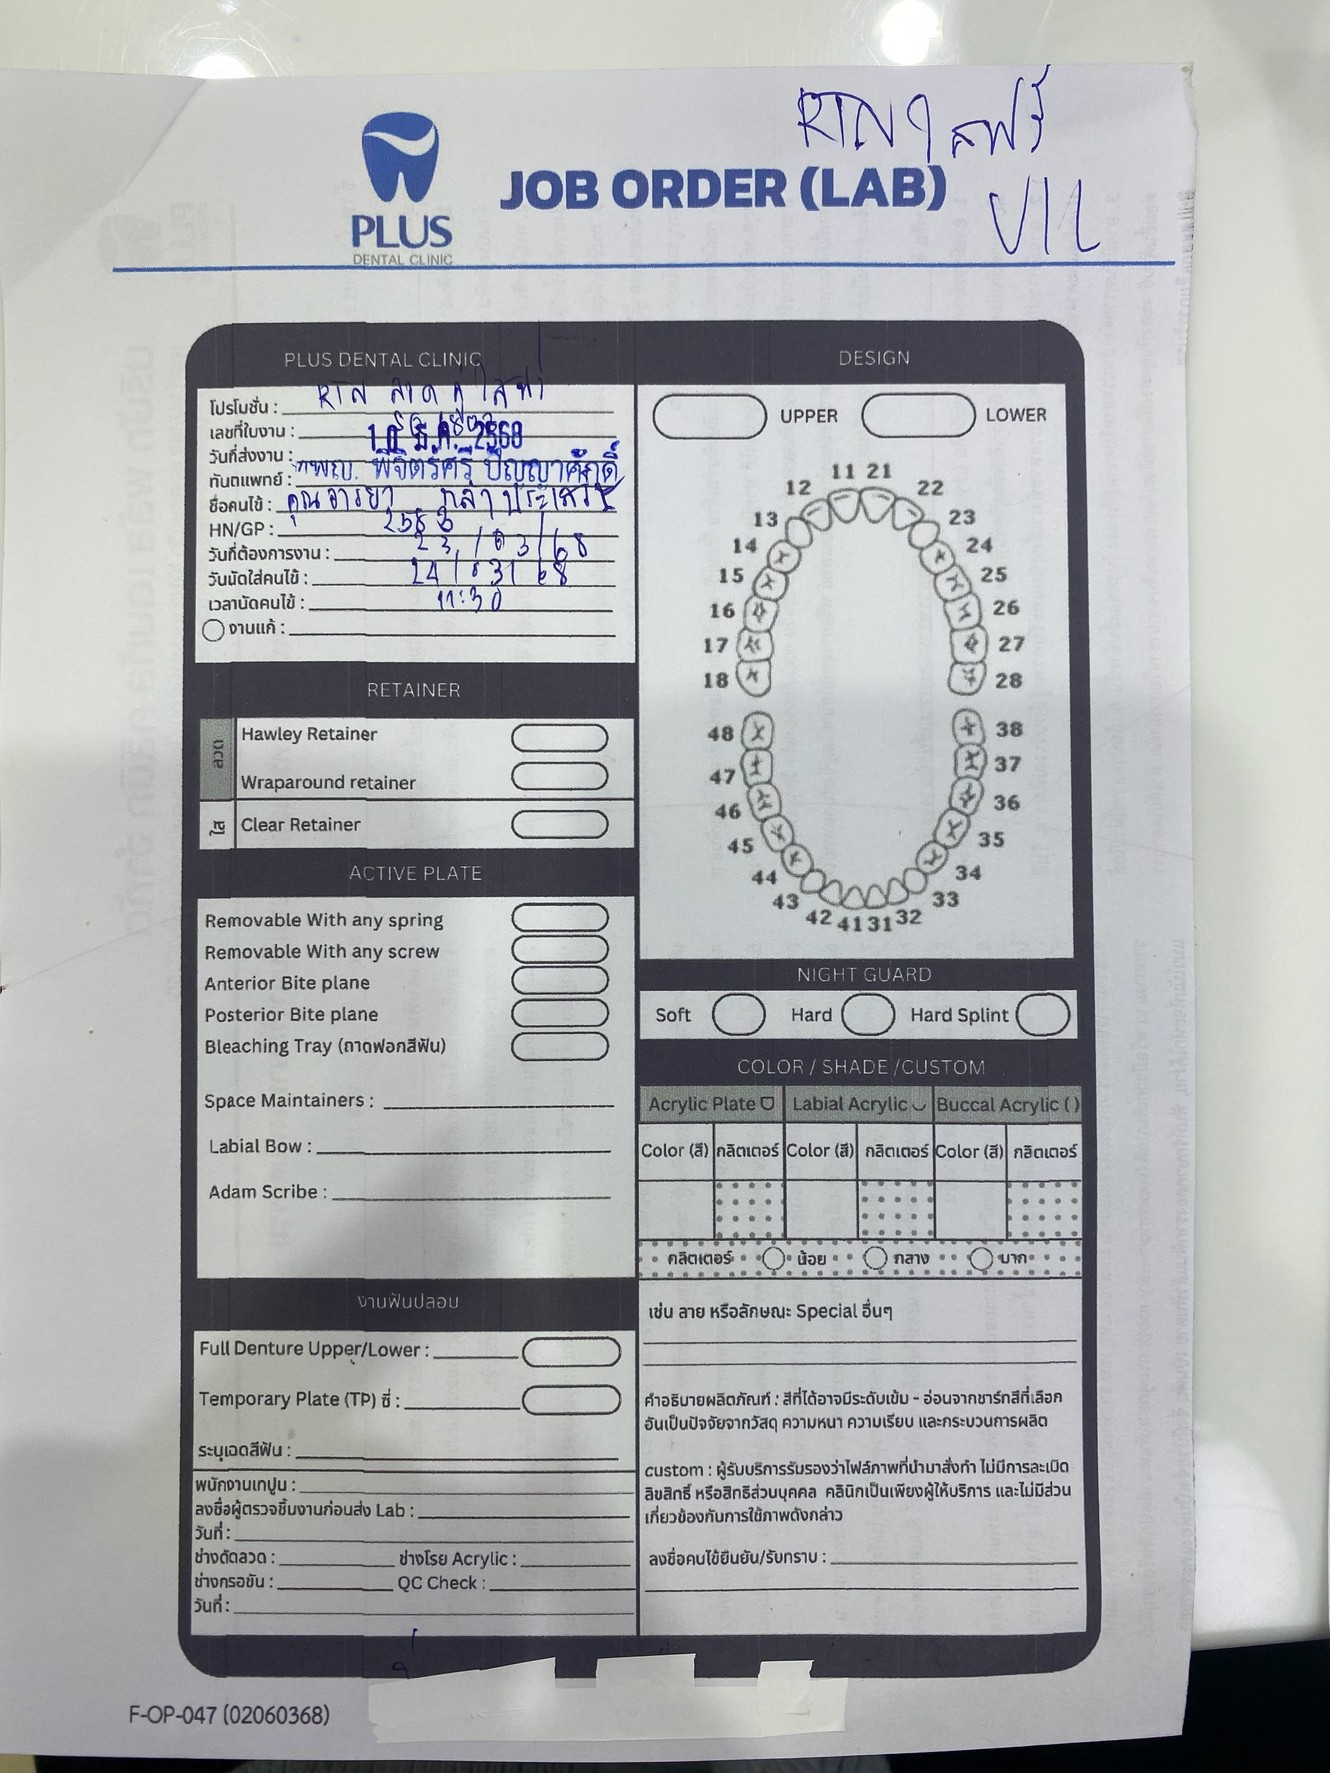 RTN ใส ฟรี
JOB ORDER (LAB)
U/L
PLUS
DENTAL CLINIC
PLUS DENTAL CLINIC
โปรโมชั่น : RTN ลวด คู่ ใส ฟรี
เลขที่ใบงาน :
วันที่ส่งงาน : 2568
ทันตแพทย์ : ทพญ. พิจิตรศรี ปัญญาศักดิ์
ชื่อคนไข้ : คุณ อารยา
HN/GP : 2583
วันที่ต้องการงาน : 23 / 03 / 68
วันนัดใส่คนไข้ : 24 / 03 / 68
เวลานัดคนไข้ : 11:30
งานแก้ :
RETAINER
ลวด
Hawley Retainer
Wraparound retainer
ใส
Clear Retainer
ACTIVE PLATE
Removable With any spring
Removable With any screw
Anterior Bite plane
Posterior Bite plane
Bleaching Tray (ถาดฟอกสีฟัน)
Space Maintainers :
Labial Bow :
Adam Scribe :
งานฟันปลอม
Full Denture Upper/Lower :
Temporary Plate (TP) ซี่ :
ระบุเฉดสีฟัน :
พนักงานเทปูน :
ลงชื่อผู้ตรวจชิ้นงานก่อนส่ง Lab :
วันที่ :
ช่างดัดลวด : ช่างโรย Acrylic :
ช่างกรอขัน : QC Check :
วันที่ :
DESIGN
UPPER LOWER
11 21
12 22
13 23
14 24
15 25
16 26
17 27
18 28
48 38
47 37
46 36
45 35
44 34
43 33
42 41 31 32
NIGHT GUARD
Soft Hard Hard Splint
COLOR / SHADE /CUSTOM
Acrylic Plate Labial Acrylic Buccal Acrylic ( )
Color (สี) กลิตเตอร์ Color (สี) กลิตเตอร์ Color (สี) กลิตเตอร์
กลิตเตอร์ น้อย กลาง มาก
เช่น ลาย หรือลักษณะ Special อื่นๆ
คำอธิบายผลิตภัณฑ์ : สีที่ได้อาจมีระดับเข้ม - อ่อนจากชาร์ทสีที่เลือก
อันเป็นปัจจัยจากวัสดุ ความหนา ความเรียบ และกระบวนการผลิต
custom : ผู้รับบริการรับรองว่าไฟล์ภาพที่นำมาสั่งทำ ไม่มีการละเปิด
ลิขสิทธิ์ หรือสิทธิส่วนบุคคล คลินิกเป็นเพียงผู้ให้บริการ และไม่มีส่วน
เกี่ยวข้องกับการใช้ภาพดังกล่าว
ลงชื่อคนไข้ยืนยัน/รับทราบ :
F-OP-047 (02060368)